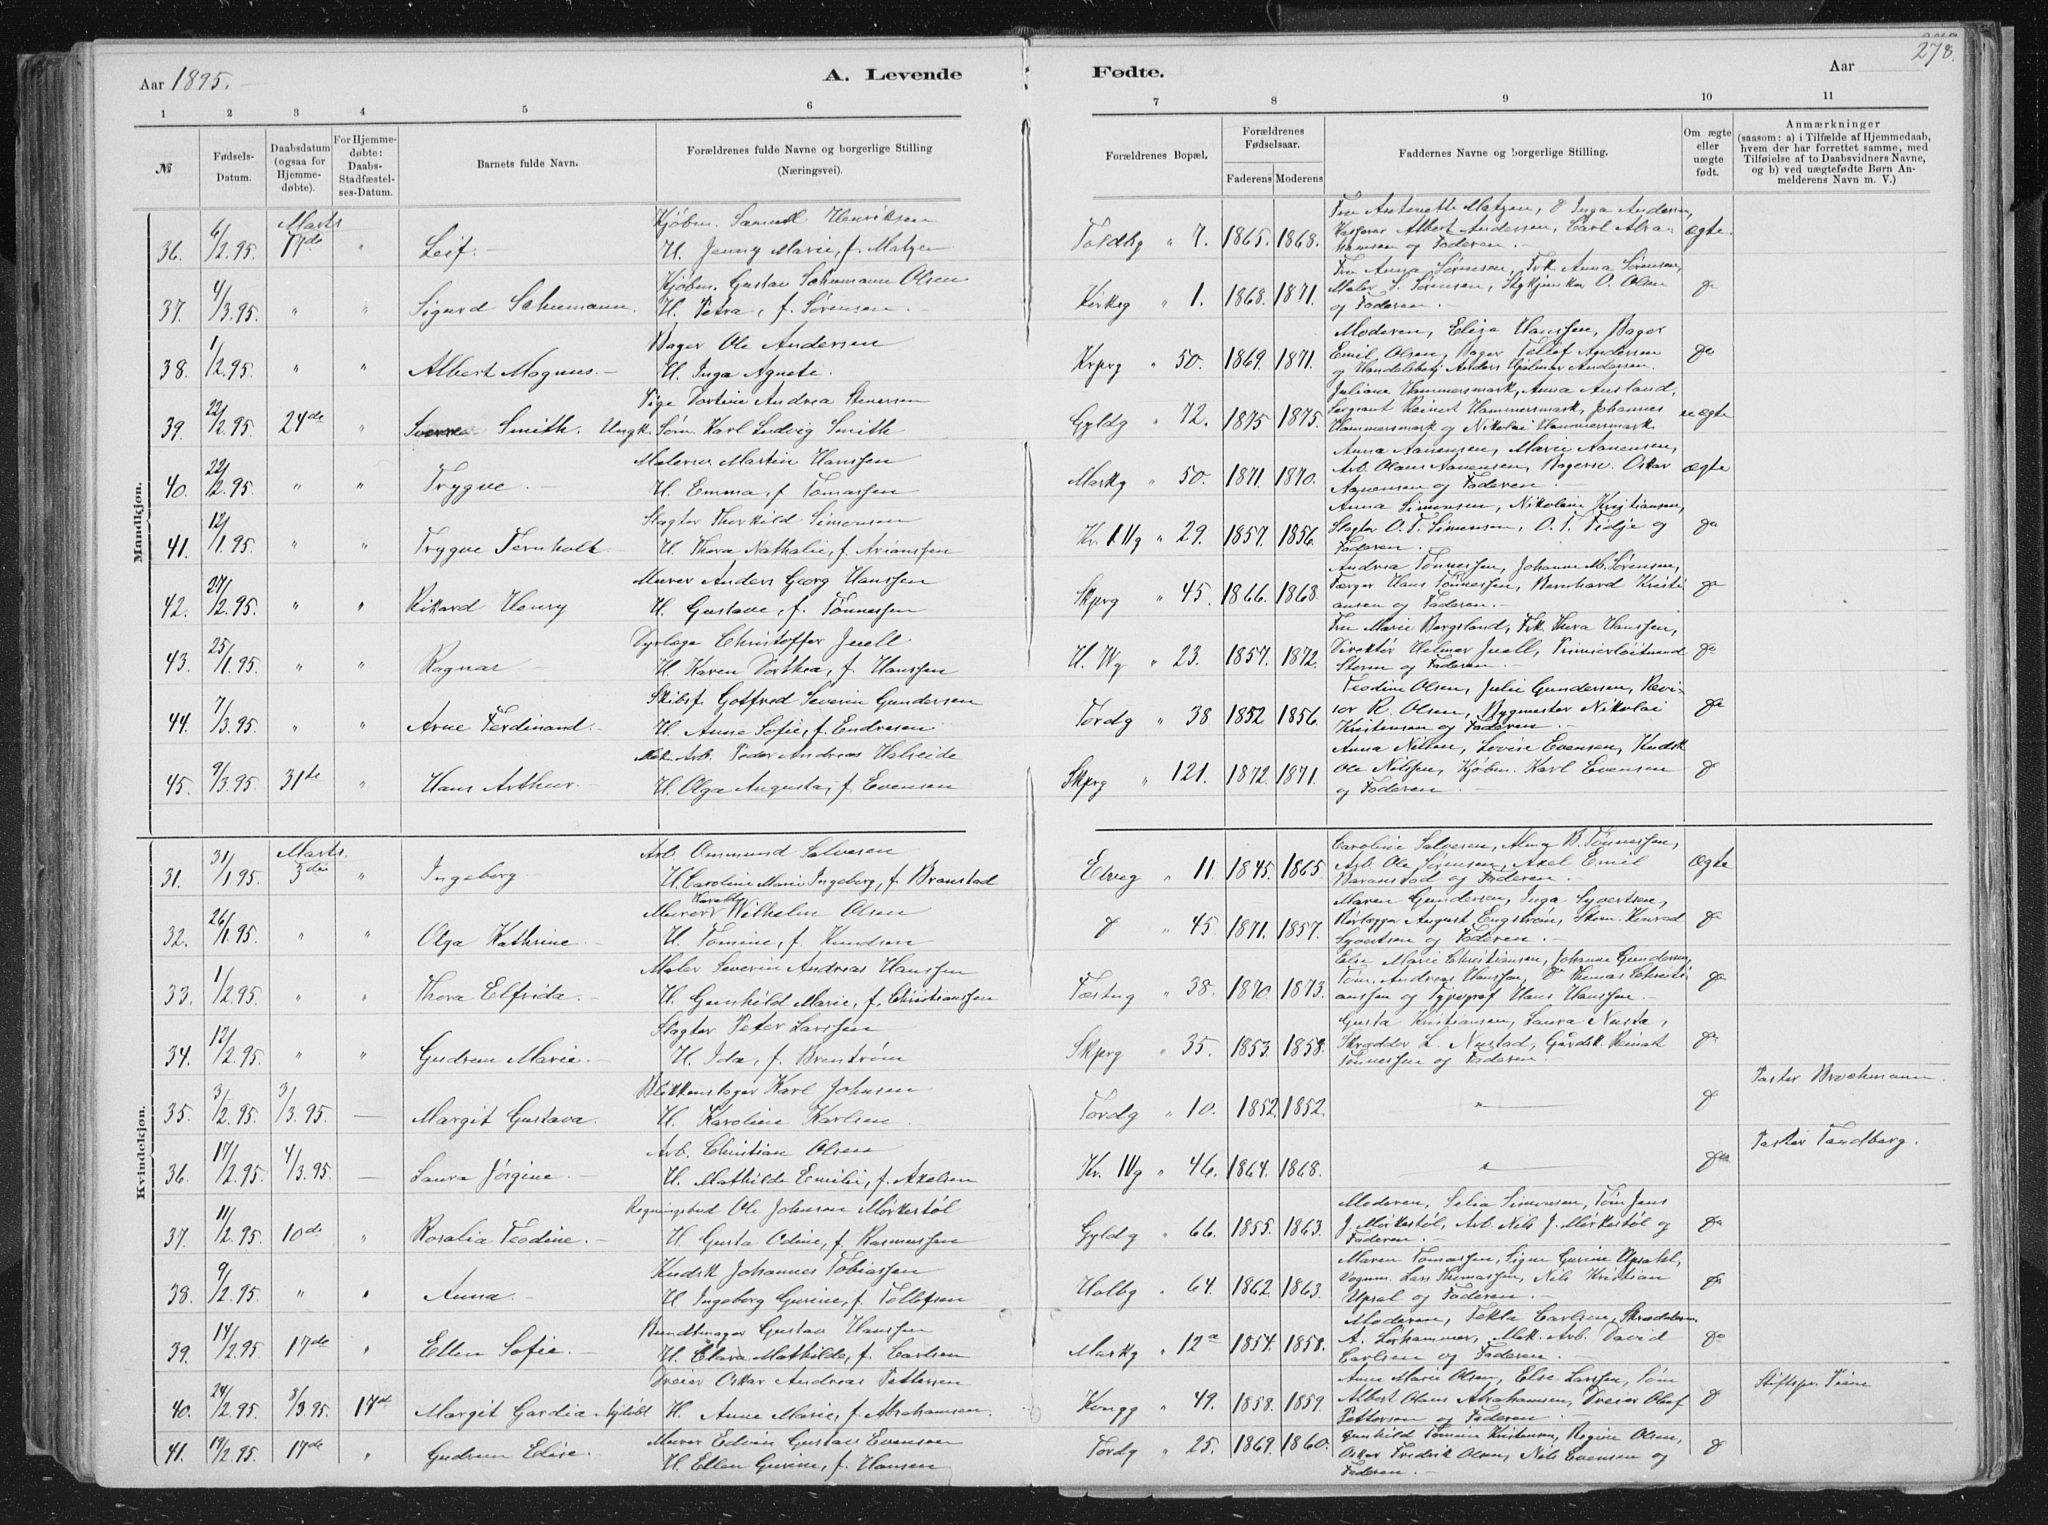 278.
Aar 1895.
A. Levende Fødte.
Aar
1 2 3 4 5 6 7 8 9 10 11
№
Fødsels-Datum.
Daabsdatum (ogsaa for Hjemmedøbte).
For Hjemmedøbte: Daabs-Stadfæstelses-Datum.
Barnets fulde Navn.
Forældrenes fulde Navne og borgerlige Stilling (Næringsvei).
Forældrenes Bopæl.
Forældrenes Fødselsaar.
Faderens Moderens
Faddernes Navne og borgerlige Stilling.
Om ægte eller uægte født.
Anmærkninger
(saasom: a) i Tilfælde af Hjemmedaab, hvem der har forrettet samme, med Tilføielse af to Daabsvidners Navne, og b) ved uægtefødte Børn Anmelderens Navn m. V.)
Mandkjøn.
36. 6/2.95. Marts 17de " Leif. Kjøbm. Samuel Henriksen
H. Jenny Marie, f. Matzen Toldbg 7. 1865. 1868. Fru Antonette Matzen, Inga Andersen,
Kasserer Albert Andersen, Carl Abra-
hamsen og Faderen. Ægte.
37. 4/3.95. " " Sigurd Schumann. Kjøbm. Gustav Schumann Olsen
H. Petra, f. Sørensen. Kirkeg " 1. 1868. 1871. Fru Anna Sørensen, Frk. Anna Sørensen,
Maler S. Sørensen, O. Olsen
og Faderen. do
38. 1/2.95. " " Albert Magnus. Bager Ole Andersen
H. Inga Agnete. Krprg " 50. 1869. 1871. Moderen, Elise Hanssen, Bager
Emil Olsen, Bager Tellef Andersen
og Handelsbetj. Anders Hjalmar Andersen. do
39. 22/2.95. 24de " Sverre Smith. Pige Dortine Andrea Stenersen
Ungk. Søm. Karl Ludvig Smith Gyldg " 72. 1875 1875. Juliane Hammersmark, Anna Ausland,
Sergeant Reinert Hammersmark, Johannes
Hammersmark og Nikolai Hammersmark uægte
40. 22/2.95. " " Trygve. Malersv. Martin Hanssen
H. Emma, f. Tomassen Markg " 50. 1871. 1870. Anna Aanensen, Marie Aanensen,
Arb. Olaus Aanensen, Bagersv. Oskar
Aanensen og Faderen. ægte
41. 12/1.95. " " Trygve Fernholt. Slagter Thorkild Simonsen
H. Thora Nathalie, f. Arianssen Kr. IVg " 29. 1857. 1856. Anna Simonsen, Nikoline Kristiansen,
Slagter O. T. Simonsen, O. T. Tidje og
Faderen. do
42. 27/2.95. " " Rikard Henry Murer Anders Georg Hanssen
H. Gustave, f. Tønnessen Skprg " 45. 1866. 1868. Andrea Tønnessen, Johanne M. Sørensen,
Farger Hans Tønnessen, Bernhard Kristi
ansen og Faderen. do
43. 25/1.95. " " Ragnar Dyrlæge Christoffer Juell
H. Karen Dorthea, f. Hanssen H. Vg " 23. 1857. 1872. Fru Marie Bergsland, Frk. Thora Hanssen,
Direktør Helmer Juell, Primierløitnand
Storm og Faderen. do
44. 7/3.95. " " Arne Ferdinand. Skibsf. Gotfred Severin Gundersen
H. Anne Sofie, f. Endresen Tordg " 38 1852 1856. Teodine Olsen, Julie Gundersen, Revi-
sor R. Olsen, Bygmester Nikolai
Kristensen og Faderen. do
45. 9/3.95. 31te " Hans Arthur. Mek. Arb. Peder Andreas Halreide
H. Olga Augusta, f. Evensen Skprg " 121. 1872. 1871. Anna Nilsen, Lovise Evensen, Kudsk
Ole Nilssen, Kjøbm. Karl Evensen
og Faderen. do
Kvindekjøn.
31. 31/1.95. Marts. 3die " Ingeborg. Arb. Ommund Salvesen
H. Caroline Marie Ingeborg, f. Branstad Elveg " 11 1845. 1865. Caroline Salvesen, Alma B. Tønnessen,
Arb. Ole Sørensen, Axel Emil
Baranstad og Faderen. Ægte
32. 26/1.95. " " Olga Kathrine. Murer Wilhelm Olsen
H. Tomine, f. Knudsen do " 45. 1871. 1857. Maren Gundersen, Inga Syvertsen,
Rørlægger August Engstrøm, Skom. Konrad
Syvertsen og Faderen. do
33. 1/2.95. " " Thora Elfrida. Maler Severin Andreas Hanssen
H. Gunhild Marie, f. Christianssen Fæstng " 38. 1870. 1873. Else Marie Christiansen, Johanne Gundersen,
Tøm. Andreas Hanssen, do Thomas Christi
anssen og Typograf Hans Hanssen. do
34. 12/2.95. " " Gudrun Marie. Slagter Peter Larssen
H. Ida, f. Brenstrøm Skprg " 35. 1853. 1858. Gusta Kristiansen, Laura Nustad,
Skrædder L. Nustad, Gårdsk. Reinat
Tønnessen og Faderen. do
35. 3/2.95. 3/3.95. — Margit Gustava. Blikkenslager Karl Johnsen
H. Karoline Karlsen. Tordg " 10. 1852. 1852. " do Pastor Brochmann.
36. 17/2.95. 4/3.95. — Laura Jørgine. Arb. Christian Olsen
H. Mathilde Emilie, f. Axelsen Kr. IVg " 46. 1864. 1868. " do Pastor Tandberg.
37. 11/2.95. 10de " Rosalia Teodine. Regningsbud Ole Johnsen Mørkestøl
H. Gusta Odine, f. Rasmussen Gyldg " 66. 1855. 1863. Moderen, Selia Simonsen, Tøm. Jens
J. Mørkestøl, Arb. Nils J. Mørkestøl og
Faderen. do
38. 9/2.95. " " Anna. Kudsk Johannes Tobiassen
H. Ingeborg Gurine, f. Tellefsen Holbg " 64. 1862. 1863. Maren Tomassen, Signe Gurine Upsahl,
Vognm. Lars Thomassen, Nils Kristian
Upsal og Faderen. do
39. 14/2.95. 17de " Ellen Sofie. Bundtmager Gustav Hanssen
H. Clara Mathilde, f. Carlsen Markg " 12a 1854. 1858. Moderen, Tekla Carlsen, Skræderm.
A. Lørhammer, Mek. Arb. David
Carlsen og Faderen. do
40. 24/2.95. 8/3.95. 17de Margit Gardia Dreier Oskar Andreas Pettersen
H. Anne Marie, f. Abrahamsen. Kongg " 49. 1858. 1859. Anna Marie Olsen, Else Larssen, Søm
Albert Olaus Abrahamsen, Dreier Olaf
Petterson og Faderen. do Stiftspr. Piene
41. 19/2.95. 17de " Gudrun Elise. Murer Edvin Gustav Evensen
H. Ellen Gurine, f. Hansen Tordg " 25. 1869. 1860. Gunhild Tomine Kristensen, Regine Olsen,
Oskar Fredrik Olsen, Nils Evensen og
Faderen. do